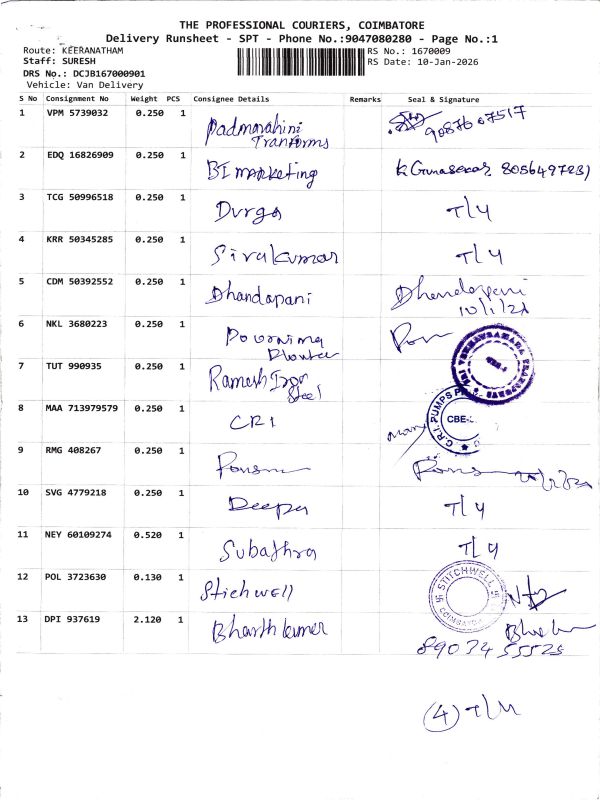 THE PROFESSIONAL COURIERS, COIMBATORE
Delivery Runsheet - SPT - Phone No.:9047080280 - Page No.:1
Route: KEERANATHAM
RS No.: 1670009
Staff: SURESH
RS Date: 10-Jan-2026
DRS No.: DCJB167000901
Vehicle: Van Delivery
S No Consignment No Weight PCS Consignee Details Remarks Seal & Signature
1 VPM 5739032 0.250 1 Padmavahini Tranforms
2 EDQ 16826909 0.250 1 BI marketing K Gunasekar
3 TCG 50996518 0.250 1 Durga T/4
4 KRR 50345285 0.250 1 Sivalkumar T/4
5 CDM 50392552 0.250 1 Dhandapani Dhandapani
6 NKL 3680223 0.250 1 Pournima
7 TUT 990935 0.250 1 Ramesh Iron Steel
8 MAA 713979579 0.250 1 CRI C.R.I. PUMPS CBE-
9 RMG 408267 0.250 1
10 SVG 4779218 0.250 1 Deepa T/4
11 NEY 60109274 0.520 1 Subathra T/4
12 POL 3723630 0.130 1 Stichwell STITCHWELL COIMBATORE
13 DPI 937619 2.120 1 Bharth kumar
8903455525
4 T/4